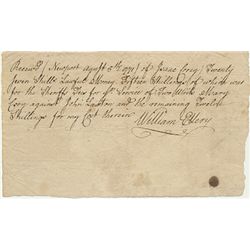 Receiv'd Newport Augst 5th 1771 of Isaac Cory Twenty
Seven Shills Lawful Money Fifteen Shillings of which was
for the Sheriffs Fees for ye Service of Two Writts Mary
Cory against John Lawton and the remaining Twelve
Shillings for my Cost therein
William Ellery